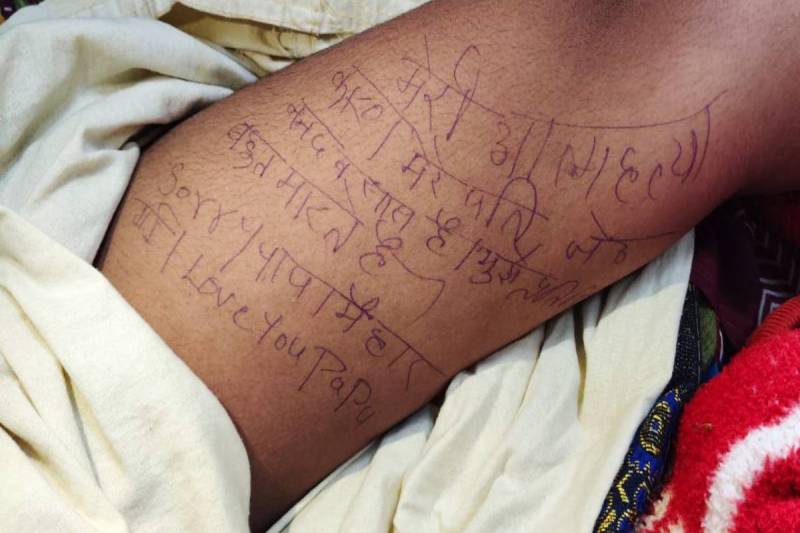 मेरी आत्महत्या
कारण मेरे पति और
ननद व सास है। मुझे
बहुत मारते है
Sorry पापा मै हार
गयी I Love You PaPa